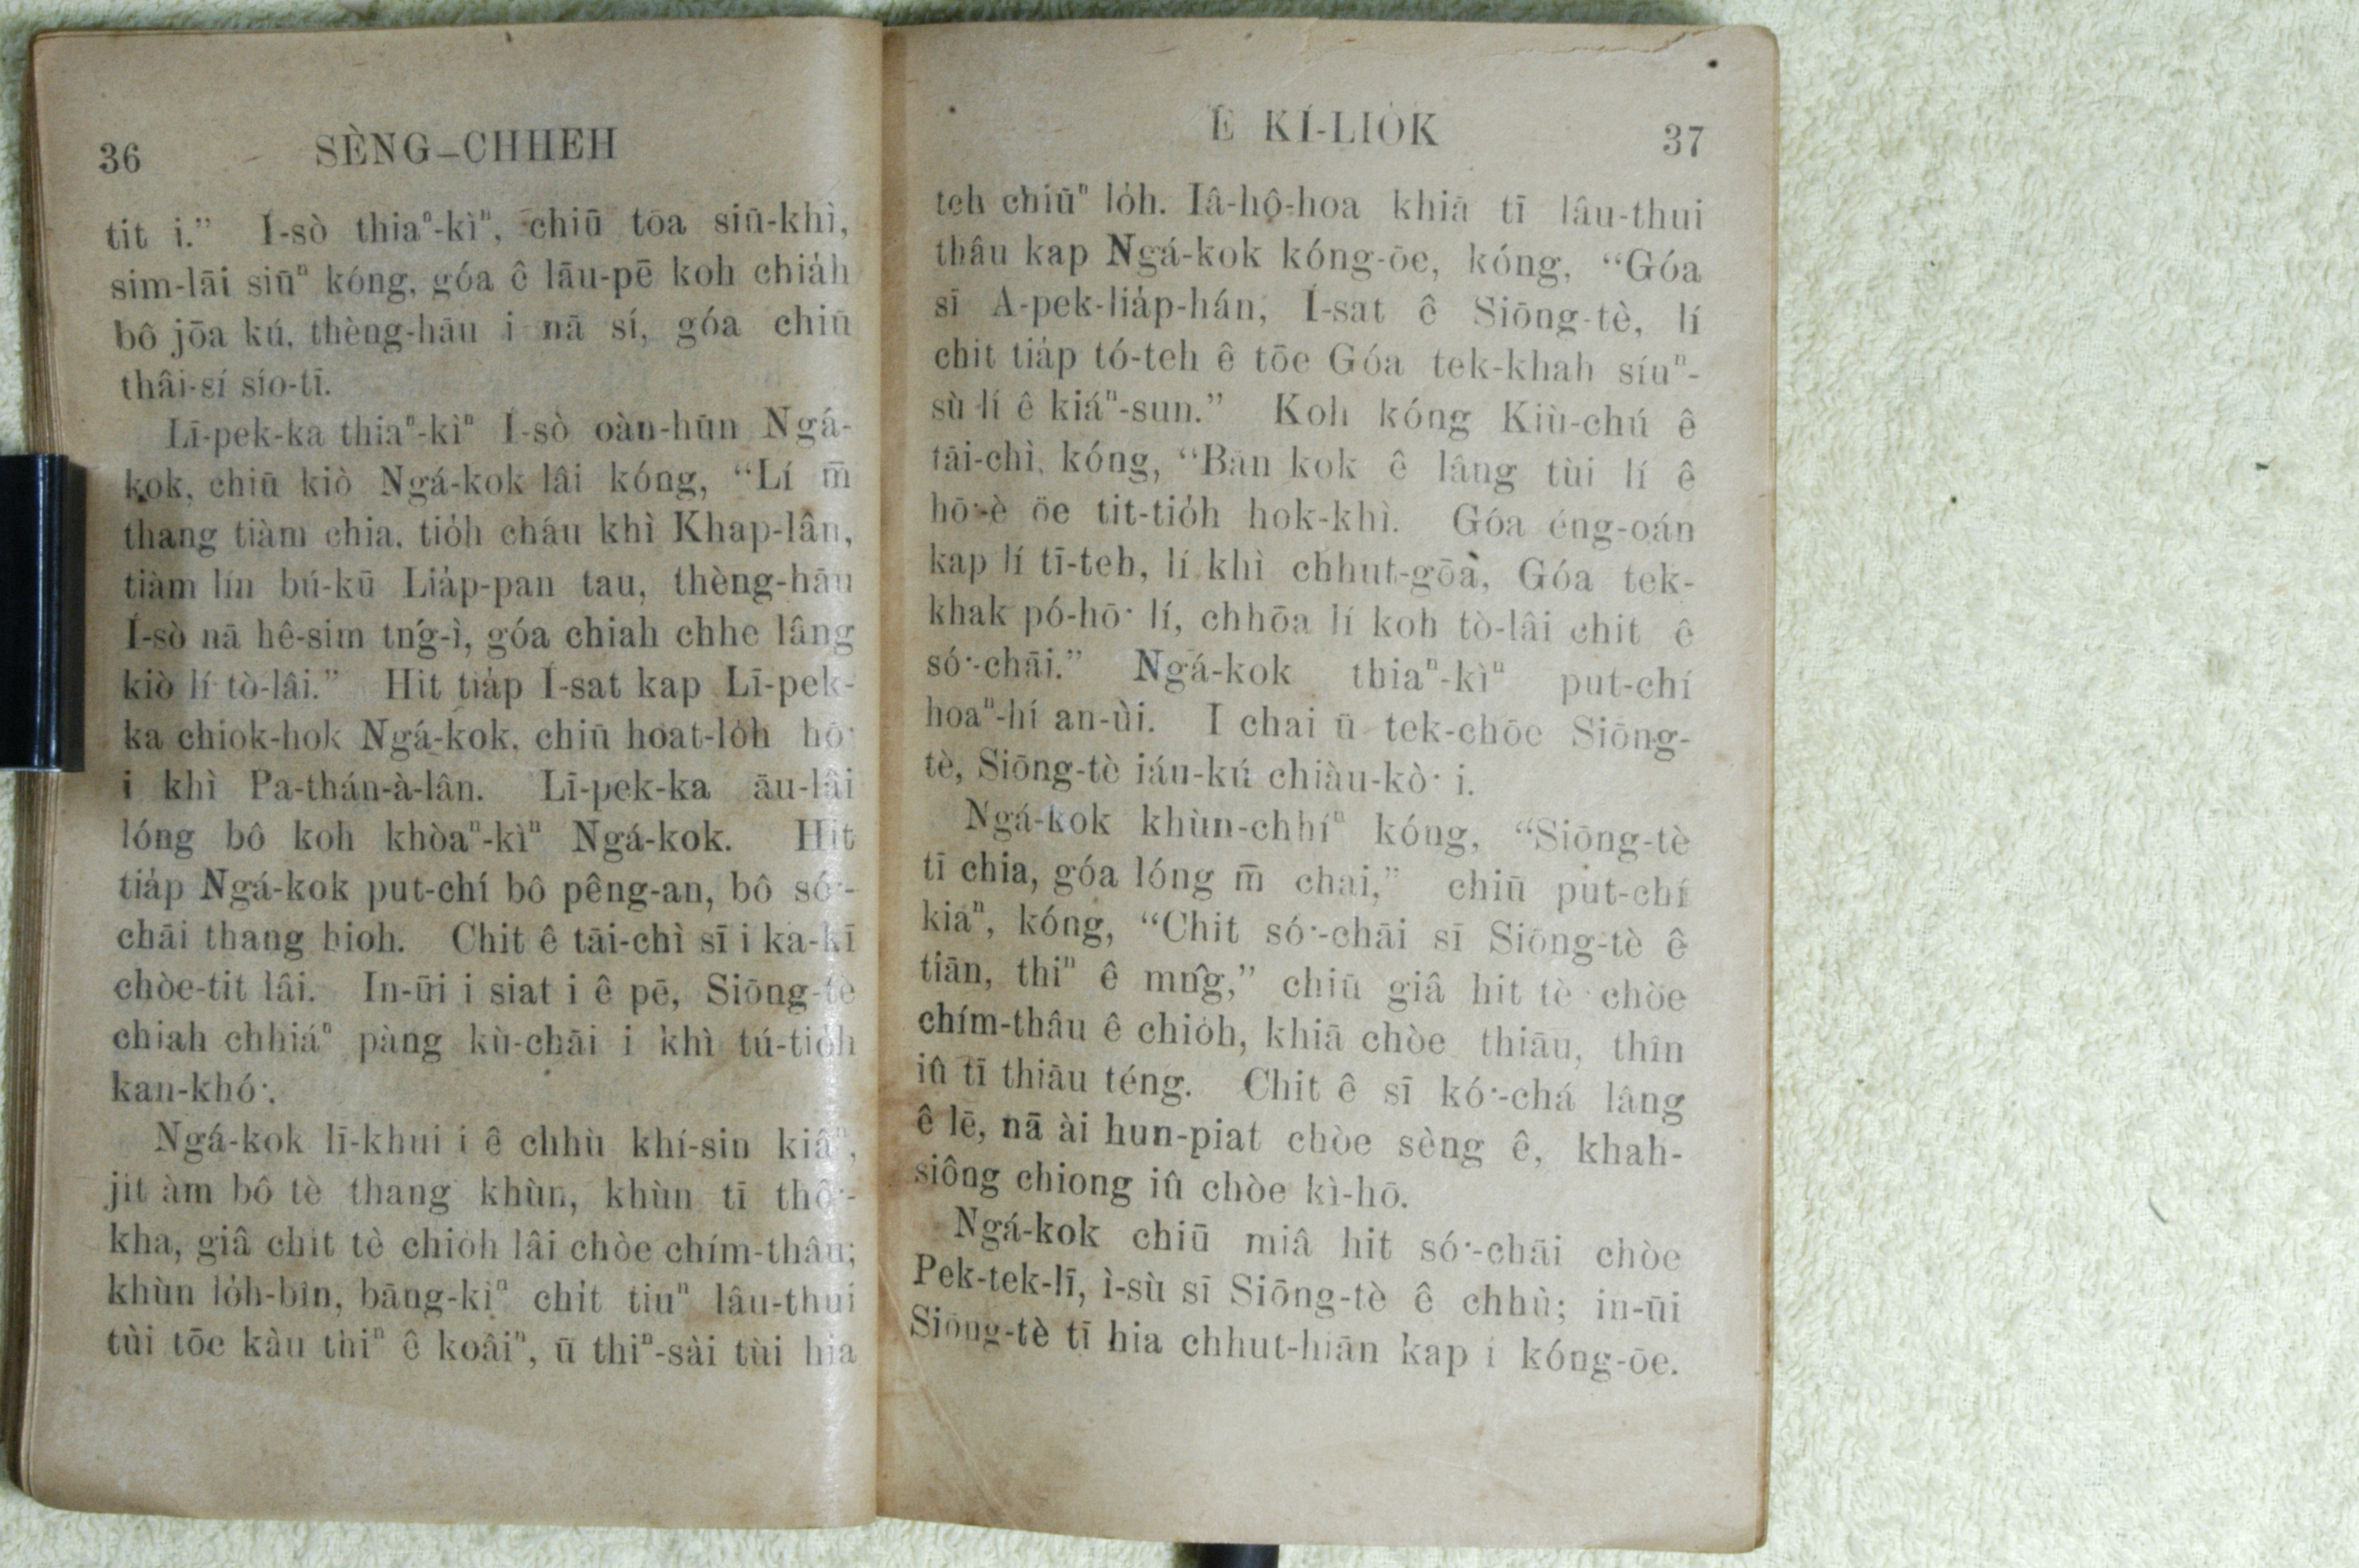 36 SÈNG-CHHEH
tit i.” Í-sò thiaⁿ-kìⁿ, chiū tōa siū-khì,
sim-lāi siūⁿ kóng, góa ê lāu-pē koh chia̍h
bô jōa kú, thèng-hāu i nā sí, góa chiū
thâi-sí sío-tī.
Lī-pek-ka thiaⁿ-kìⁿ Í-sò oàn-hūn Ngá-
kok, chiū kiò Ngá-kok lâi kóng, “Lí m̄
thang tiàm chia, tio̍h cháu khì Khap-lân,
tiàm lín bú-kū Lia̍p-pan tau, thèng-hāu
Í-sò nā hê-sim tńg-ì, góa chiah chhe lâng
kiò lí tò-lâi.” Hit tia̍p Í-sat kap Lī-pek-
ka chiok-hok Ngá-kok, chiū hoat-lo̍h hō͘
i khì Pa-thán-à-lân. Lī-pek-ka āu-lâi
lóng bô koh khòaⁿ-kìⁿ Ngá-kok. Hit
tia̍p Ngá-kok put-chí bô pêng-an, bô só͘-
chāi thang hioh. Chit ê tāi-chì sī i ka-kī
chòe-tit lâi. In-ūi i siat i ê pē, Siōng-tè
chiah chhiáⁿ pàng kù-chāi i khì tú-tio̍h
kan-khó͘.
Ngá-kok lī-khui i ê chhù khí-sin kiâⁿ,
jit àm bô tè thang khùn, khùn tī thô͘-
kha, giâ chit tè chio̍h lâi chòe chím-thâu;
khùn lo̍h-bîn, bāng-kìⁿ chi̍t tiuⁿ lâu-thui
tùi tōe kàu thiⁿ ê koâiⁿ, ū thiⁿ-sài tùi hia
Ê KÍ-LIO̍K 37
teh chiūⁿ lo̍h. Iâ-hô-hoa khiā tī lâu-thui
thâu kap Ngá-kok kóng-ōe, kóng, “Góa
sī A-pek-lia̍p-hán, Í-sat ê Siōng-tè, lí
chit tia̍p tó-teh ê tōe Góa tek-khah síuⁿ-
sù lí ê kiáⁿ-sun.” Koh kóng Kiù-chú ê
tāi-chì, kóng, “Bān kok ê lâng tùi lí ê
hō͘-è ōe tit-tio̍h hok-khì. Góa éng-oán
kap lí tī-teh, lí khì chhut-gōa, Góa tek-
khak pó-hō͘ lí, chhōa lí koh tò-lâi chit ê
só͘-chāi.” Ngá-kok thiaⁿ-kìⁿ put-chí
hoaⁿ-hí an-ùi. I chai ū tek-chōe Siōng-
tè, Siōng-tè iáu-kú chiàu-kò͘ i.
Ngá-kok khùn-chhíⁿ kóng, “Siōng-tè
tī chia, góa lóng m̄ chai,” chiū put-chí
kiaⁿ, kóng, “Chit só͘-chāi sī Siōng-tè ê
tiān, thiⁿ ê mn̂g,” chiū giâ hit tè chòe
chím-thâu ê chio̍h, khiā chòe thiāu, thîn
iû tī thiāu téng. Chit ê sī kó͘-chá lâng
ê lē, nā ài hun-piat chòe sèng ê, khah-
siông chiong iû chòe kì-hō.
Ngá-kok chiū miâ hit só͘-chāi chòe
Pek-tek-lī, ì-sù sī Siōng-tè ê chhù; in-ūi
Siōng-tè tī hia chhut-hiān kap i kóng-ōe.